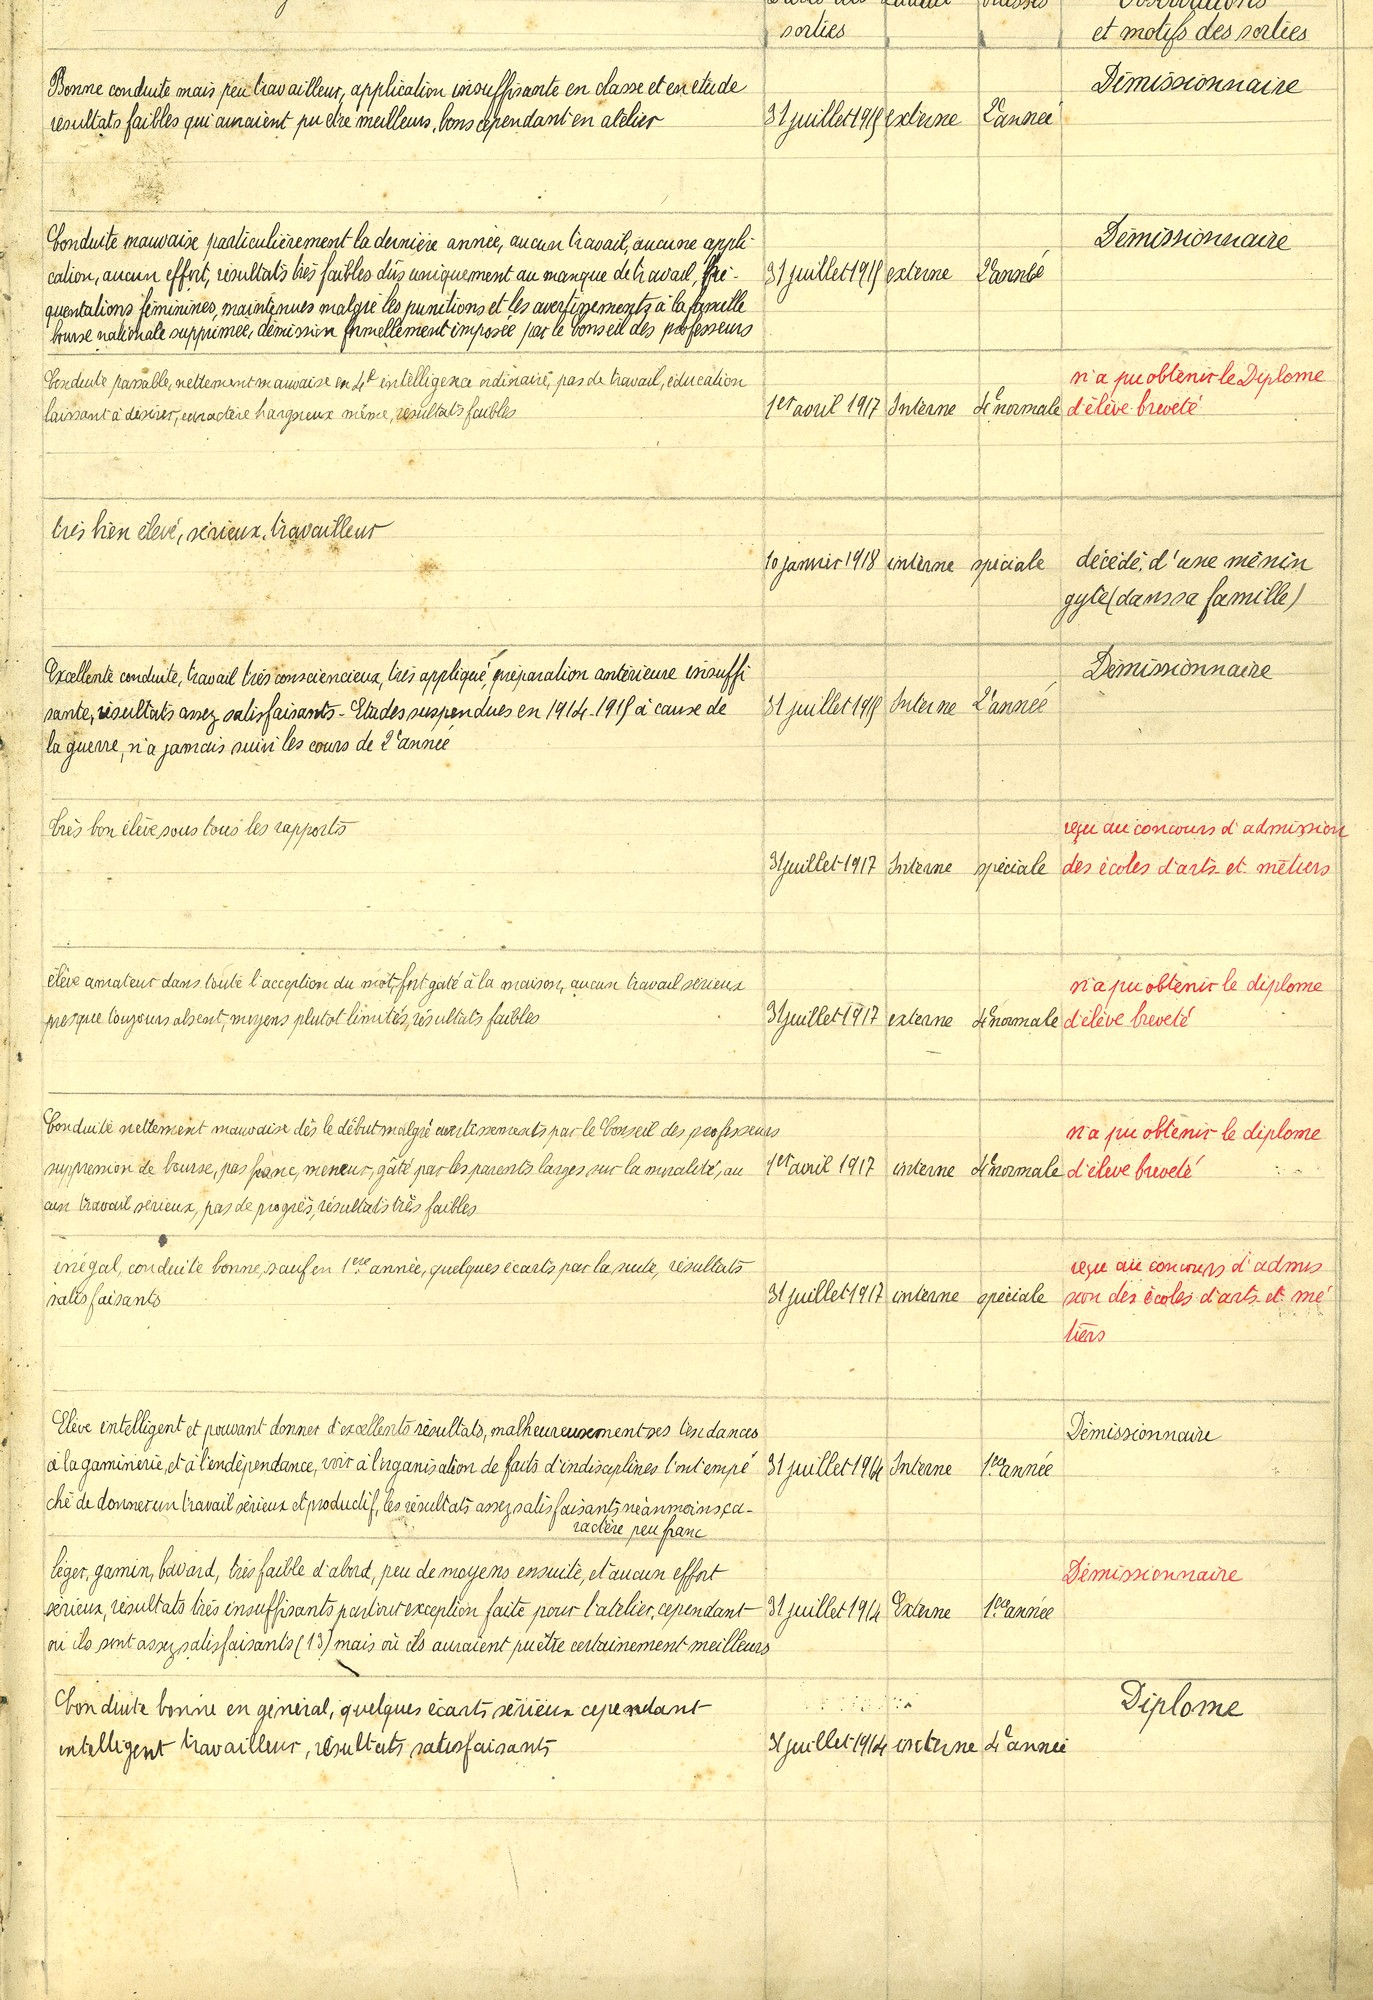 sorties
et motifs des sorties
Bonne conduite mais peu travailleur, application insuffisante en classe et en etude
résultats faibles qui auraient pu être meilleurs, bons cependant en atelier
31 juillet 1915 externe 2e année
Démissionnaire
Conduite mauvaise particulièrement la dernière année, aucun travail, aucune appli-
cation, aucun effort, résultats très faibles dûs uniquement au manque de travail, fré-
quentations féminines, maintenues malgré les punitions et les avertissements à la famille
bourse nationale supprimée, démission formellement imposée par le Conseil des professeurs
31 juillet 1915 externe 2e année
Démissionnaire
Conduite passable, nettement mauvaise en 4e intelligence ordinaire, pas de travail, éducation
laissant à désirer, caractère hargneux même, résultats faibles
1er avril 1917 Interne 4e normale
n'a pu obtenir le Diplome
d'élève breveté
très bien élevé, sérieux, travailleur
10 janvier 1918 interne spéciale
décédé d'une ménin
gyte (dans sa famille)
Excellente conduite, travail très consciencieux, très appliqué, préparation antérieure insuffi
sante, résultats assez satisfaisants - Etudes suspendues en 1914-1915 à cause de
la guerre, n'a jamais suivi les cours de 2e année
31 juillet 1915 Interne 2e année
Démissionnaire
très bon élève sous tous les rapports
31 juillet 1917 Interne spéciale
reçu au concours d'admission
des écoles d'arts et métiers
élève amateur dans toute l'acception du mot, fort gaté à la maison, aucun travail sérieux
presque toujours absent, moyens plutot limités, résultats faibles
31 juillet 1917 externe 4e normale
n'a pu obtenir le diplome
d'élève breveté
Conduite nettement mauvaise dès le début malgré avertissements par le Conseil des professeurs
suppression de bourse, pas franc, meneur, gâté par les parents larges sur la moralité, au
cun travail sérieux, pas de progrès, résultats très faibles
1er avril 1917 interne 4e normale
n'a pu obtenir le diplome
d'élève breveté
inégal, conduite bonne, sauf en 1ère année, quelques écarts par la suite, résultats
satisfaisants
31 juillet 1917 interne spéciale
reçu au concours d'admis
sion des écoles d'arts et mé
tiers
Elève intelligent et pouvant donner d'excellents résultats, malheureusement ses tendances
à la gaminerie, et à l'endépendance, voir à l'organisation de faits d'indisciplines l'ont empé
ché de donner un travail sérieux et productif, les résultats assez satisfaisants néanmoins, ca-
ractère peu franc
31 juillet 1914 Interne 1ère année
Démissionnaire
léger, gamin, bavard, très faible d'abord, peu de moyens ensuite, et aucun effort
sérieux, résultats très insuffisants partout exception faite pour l'atelier, cependant
où ils sont assez satisfaisants (13) mais où ils auraient pu être certainement meilleurs
31 juillet 1914 Externe 1ère année
Démissionnaire
Conduite bonne en général, quelques écarts sérieux cependant
intelligent travailleur, résultats satisfaisants
31 juillet 1914 interne 4e année
Diplome